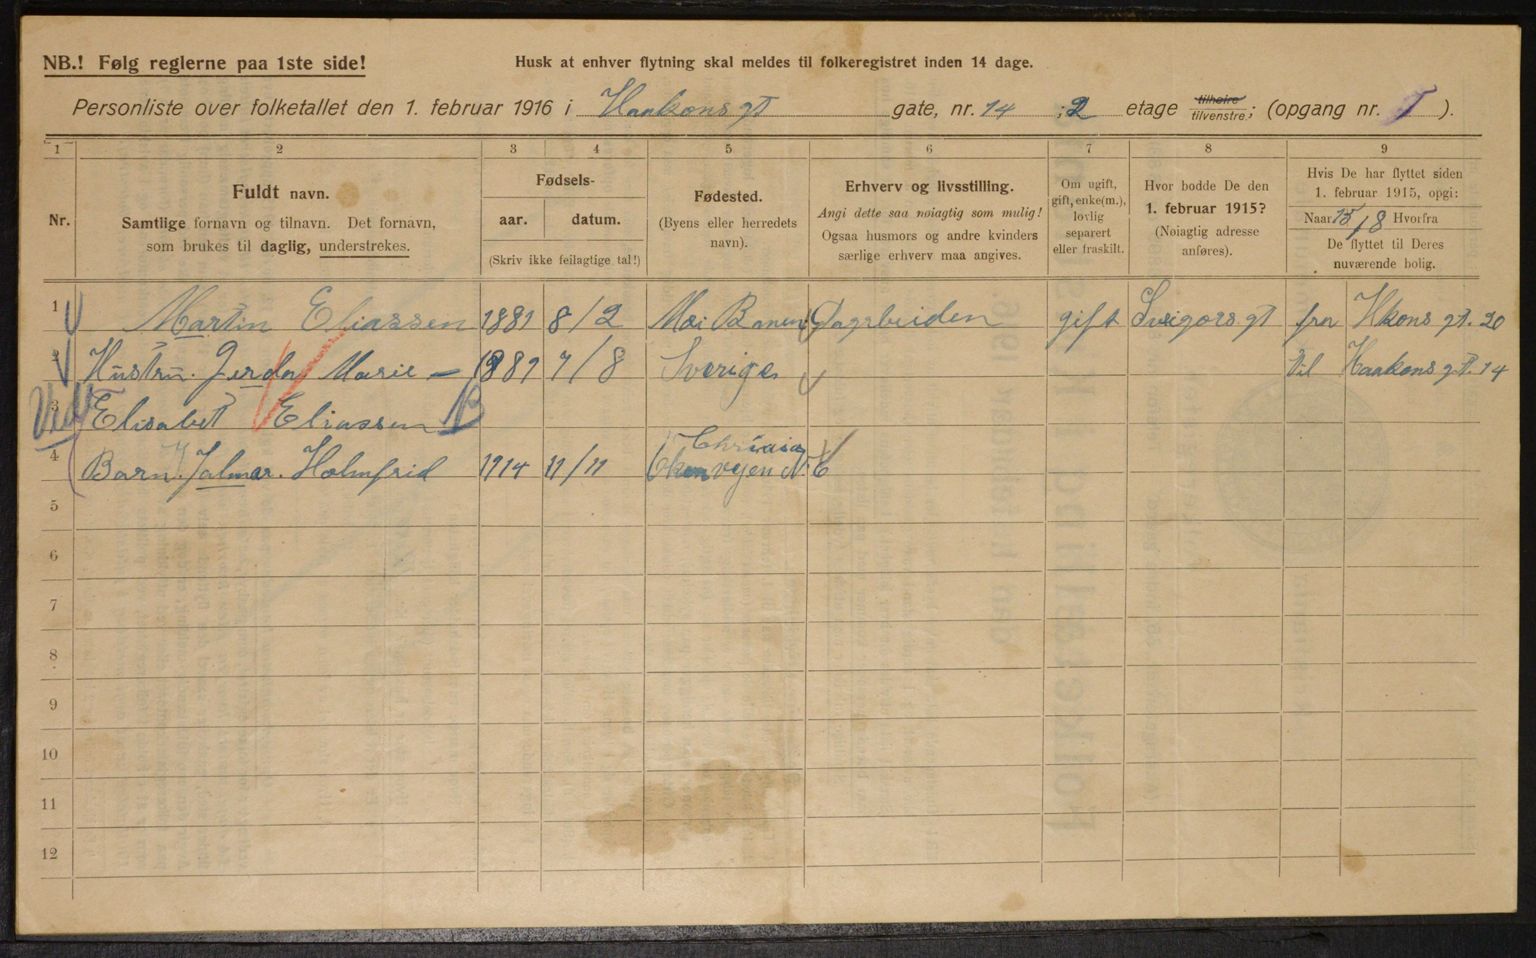 NB.! Følg reglerne paa 1ste side!
Husk at enhver flytning skal meldes til folkeregistret inden 14 dage.
Personliste over folketallet den 1. februar 1916 i Haakons gt gate, nr. 14 ; 2 etage tilhøire tilvenstre; (opgang nr. I ).
1 2 3 4 5 6 7 8 9
Nr.
Fuldt navn.
Samtlige fornavn og tilnavn. Det fornavn,
som brukes til daglig, understrekes.
Fødsels-
aar. datum.
(Skriv ikke feilagtige tal!)
Fødested.
(Byens eller herredets
navn).
Erhverv og livsstilling.
Angi dette saa nøiagtig som mulig!
Ogsaa husmors og andre kvinders
særlige erhverv maa angives.
Om ugift,
gift, enke(m.),
lovlig
separert
eller fraskilt.
Hvor bodde De den
1. februar 1915?
(Nøiagtig adresse
anføres).
Hvis De har flyttet siden
1. februar 1915, opgi:
Naar 15/8 Hvorfra
De flyttet til Deres
nuværende bolig.
1 Martin Eliassen 1881 8/2 gift fra Hkons gt. 20
2 Hustru. Gerda Marie — 1889 7/8 Sverige Til Haakons gt. 14
3 Elisabet Eliassen
4 Barn. Jalmar. Holmfrid 1914 11/11 Christia
5
6
7
8
9
10
11
12